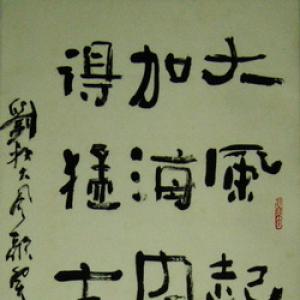 大風起
加海内
得猛士
劉邦大風歌